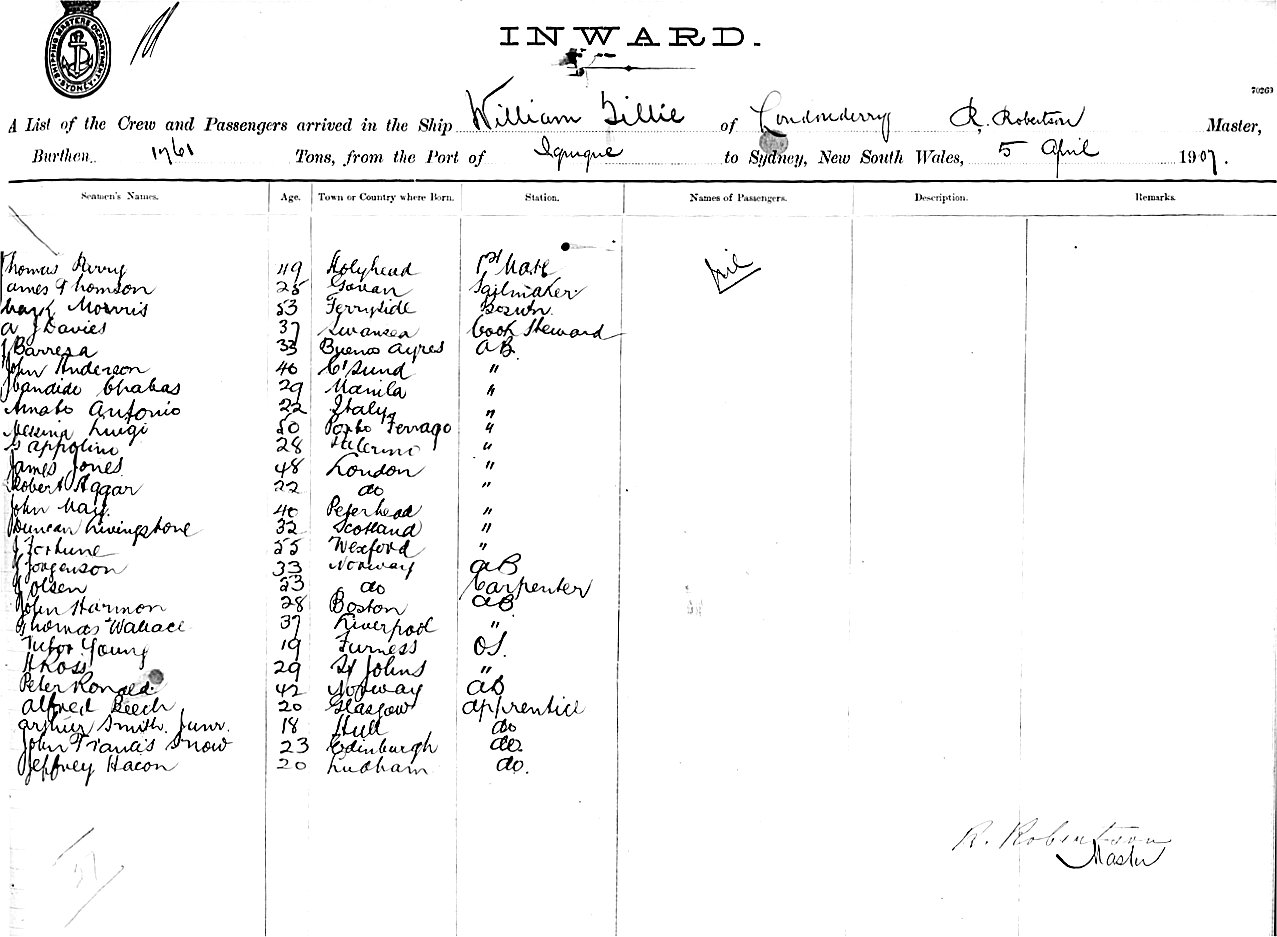 SHIPPING MASTERS DEPARTMENT SYDNEY
INWARD.
70263
A List of the Crew and Passengers arrived in the Ship William Gillie of Londonderry R. Robertson Master,
Burthen 1761 Tons, from the Port of Iquique to Sydney, New South Wales, 5 April 1907.
Seamen's Names. Age. Town or Country where Born. Station. Names of Passengers. Description. Remarks.
Thomas Perry 49 Holyhead 1st Mate nil
James Thomson 25 Govan Sailmaker
Morris 53 Ferryside Bosun
A J Davies 37 Swansea Cook Steward
J Barresa 33 Buenos Ayres AB
John Anderson 40 C'Sund "
Candido Chabas 29 Manila "
Amato Antonio 22 Italy "
Messina Luigi 50 Porto Ferrago "
G Appolini 28 Salerno "
James Jones 48 London "
Robert Haggar 22 do "
John May 40 Peterhead "
Duncan Livingstone 32 Scotland "
J Fortune 55 Wexford "
J Jorgenson 33 Norway AB
J Olsen 23 do Carpenter
John Harmon 28 Boston AB
Thomas Wallace 37 Liverpool "
Tudor Young 19 Furness OS.
H Ross 29 St Johns "
Peter Ronald 42 Norway AB
Alfred Leech 20 Glasgow Apprentice
Arthur Smith Junr. 18 Hull do
John Francis Snow 23 Edinburgh do.
Jeffrey Hacon 20 Ludham do.
R. Robertson
Master